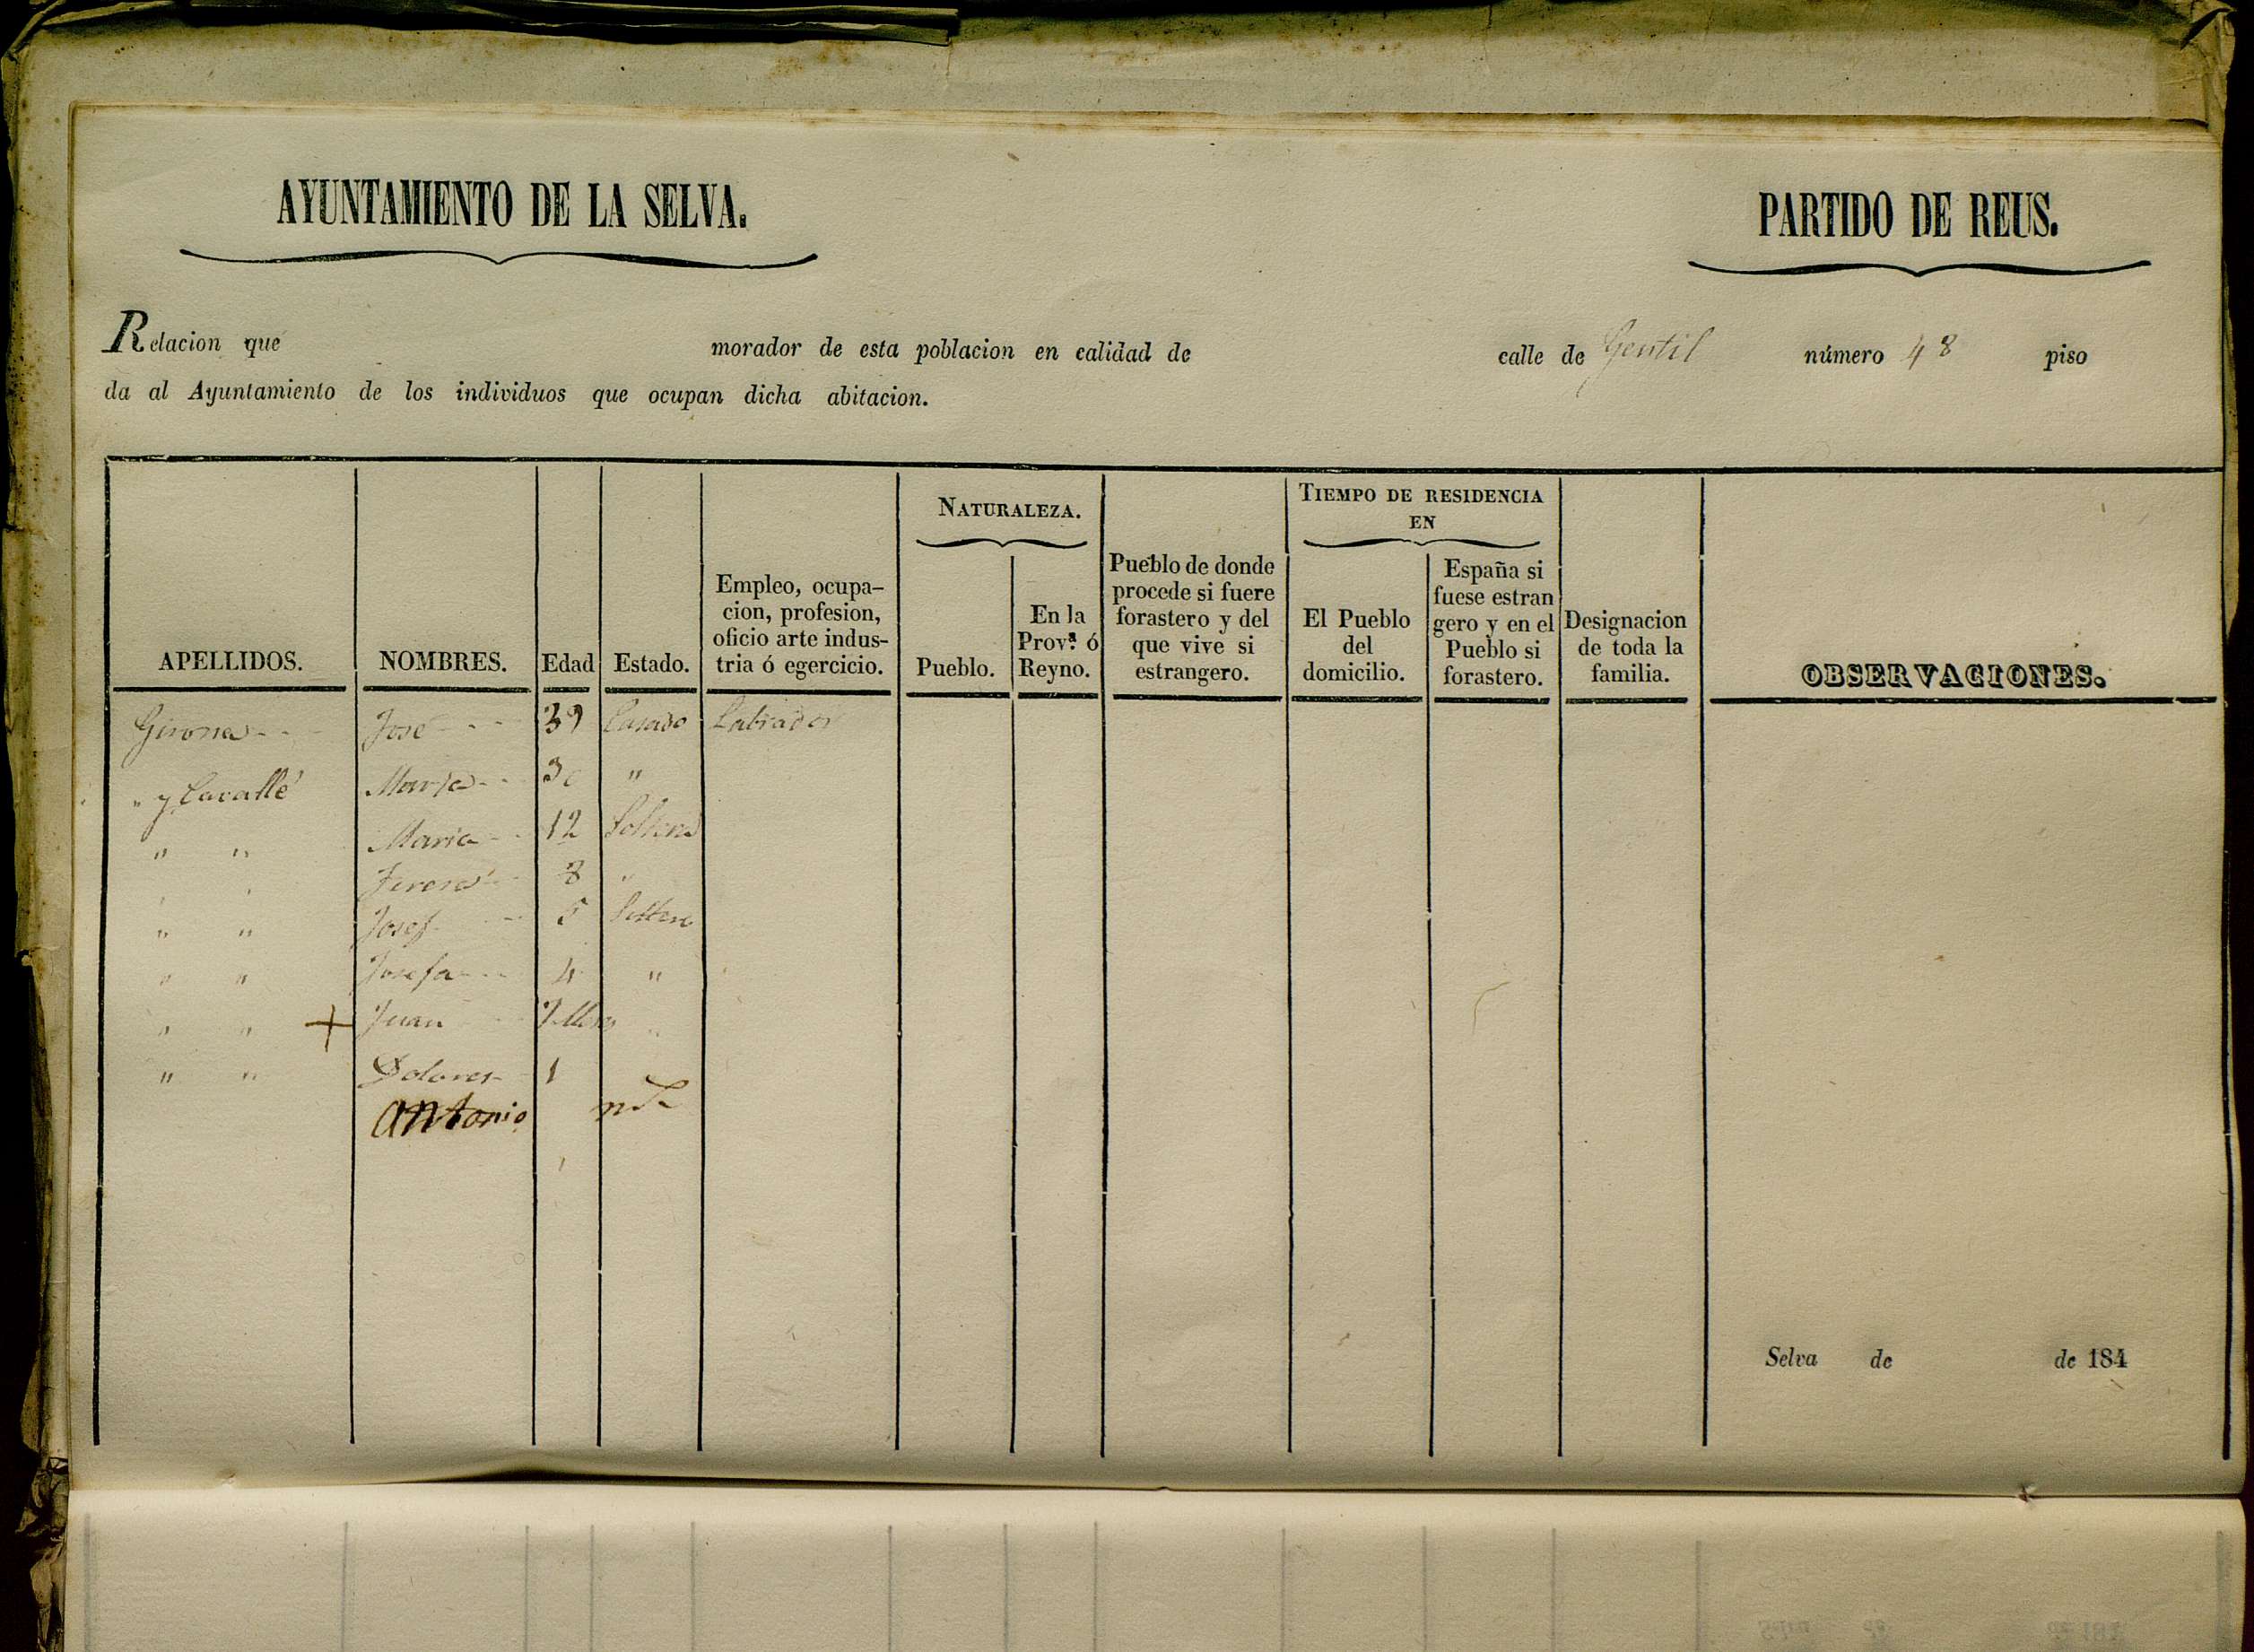 AYUNTAMIENTO DE LA SELVA. PARTIDO DE REUS.
Relacion que morador de esta poblacion en calidad de calle de Gentil número 48 piso
da al Ayuntamiento de los individuos que ocupan dicha abitacion.
APELLIDOS.
NOMBRES.
Edad
Estado.
Empleo, ocupa-
cion, profesion,
oficio arte indus-
tria ó egercicio.
NATURALEZA.
Pueblo.
En la
Prov.ª ó
Reyno.
Pueblo de donde
procede si fuere
forastero y del
que vive si
estrangero.
TIEMPO DE RESIDENCIA
EN
El Pueblo
del
domicilio.
España si
fuese estran
gero y en el
Pueblo si
forastero.
Designacion
de toda la
familia.
OBSERVACIONES.
Girona José 39 Casado Labrador
" y Cavallé Maria "
" " Maria 12 Soltera
Teresa 8 "
" " Josef 5 Soltero
" " Josefa 4 "
" " + Juan "
" " Dolores 1
Antonio
Selva de de 184